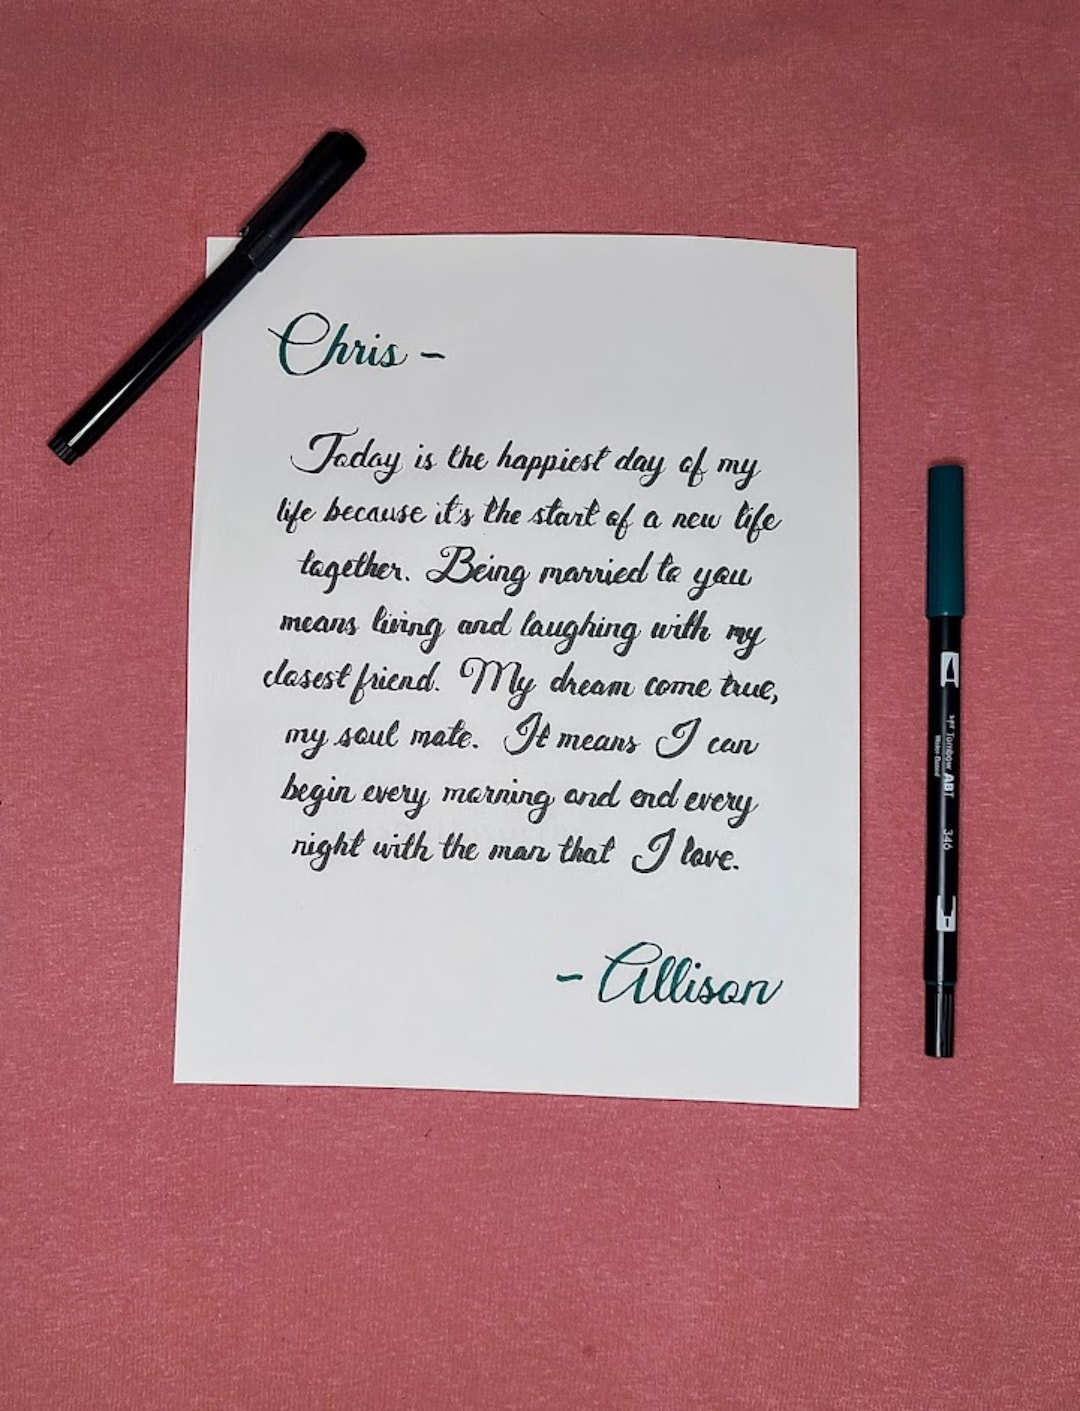 Chris -
Today is the happiest day of my
life because it's the start of a new life
together. Being married to you
means living and laughing with my
closest friend. My dream come true,
my soul mate. It means I can
begin every morning and end every
night with the man that I love.
- Allison
Tombow ABT
Water-Based
346